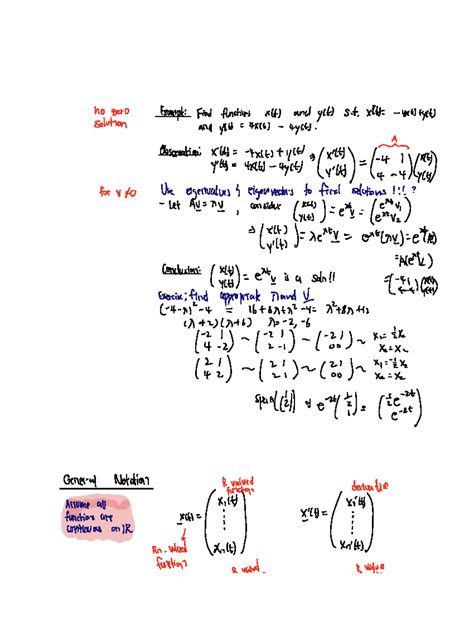 no zero solution
Example: Find functions x(t) and y(t) s.t. x'(t) = -4x(t)+y(t)
and y'(t) = 4x(t) - 4y(t).
Observation: x'(t) = -4x(t) + y(t) ⇒ (x'(t) y'(t)) = (-4 1 4 -4)(x(t) y(t))
y'(t) = 4x(t) - 4y(t)
A
for v≠0
Use eigenvalues & eigenvectors to find solutions !!! ?
- Let Av = λv , consider (x(t) y(t)) = e^λt v = (e^λt v₁ e^λt v₂)
⇒ (x'(t) y'(t)) = λe^λt v = e^λt (λv) = e^λt (Av)
= A(e^λt v)
Conclusion: (x(t) y(t)) = e^λt v is a soln!!
= (-4 1 4 -4)(x(t) y(t))
Exercise: find appropriate λ and v
(-4-λ)² - 4 = 16 + 8λ + λ² - 4 = λ² + 8λ + 12
(λ+2)(λ+6) λ = -2, -6
(-2 1 4 -2) ~ (-2 1 2 -1) ~ (-2 1 0 0) ~ x₁ = ½x₂
x₂ = x₂
(2 1 4 2) ~ (2 1 2 1) ~ (2 1 0 0) ~ x₁ = -½x₂
x₂ = x₂
span{(½ 1)} ⇒ e^-2t (½ 1) = (½e^-2t e^-2t)
General Notation
Assume all functions are continuous on R
R valued function
x(t) = (x₁(t) ⋮ xₙ(t))
Rn-valued function
R valued
derivative
x'(t) = (x₁'(t) ⋮ xₙ'(t))
R value